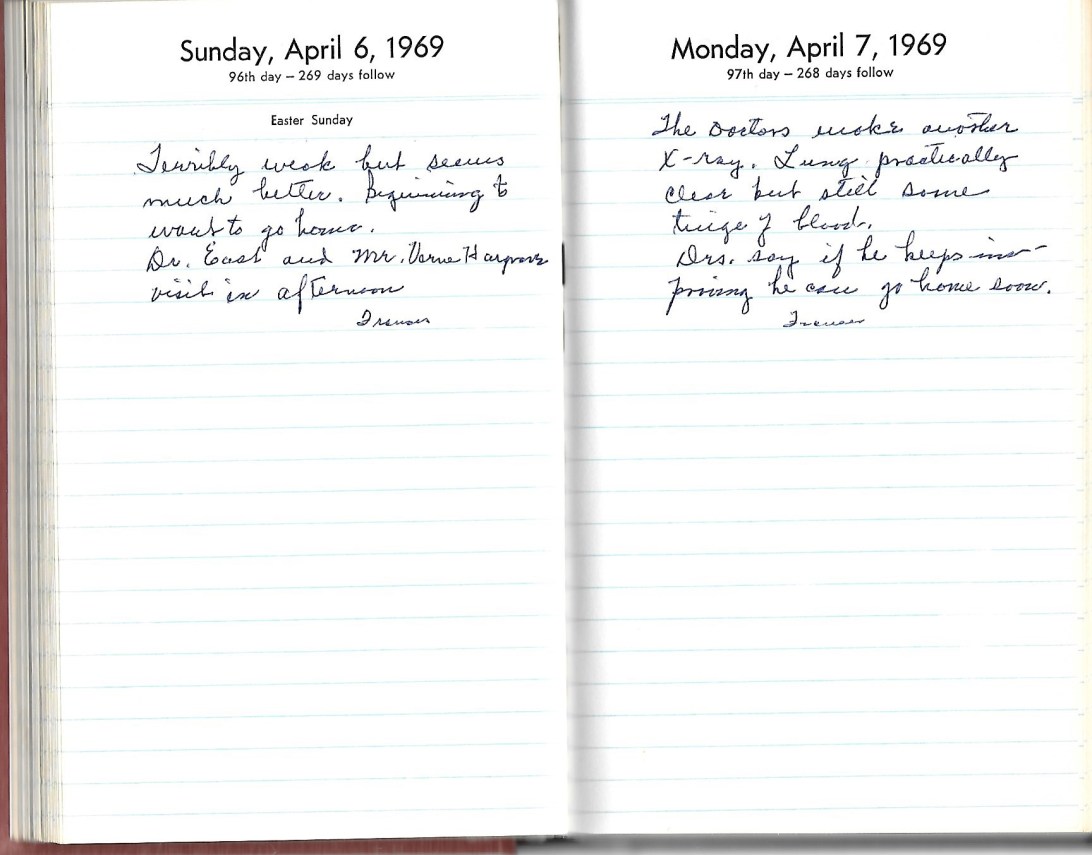 Sunday, April 6, 1969
96th day – 269 days follow
Easter Sunday
Terribly weak but seems
much better. Beginning to
want to go home.
Dr. East and Mr. Verne Hargrave
visit in afternoon
Monday, April 7, 1969
97th day – 268 days follow
The Doctors make another
X-ray. Lung practically
clear but still some
tinge of blood.
Drs. say if he keeps im-
proving he can go home soon.